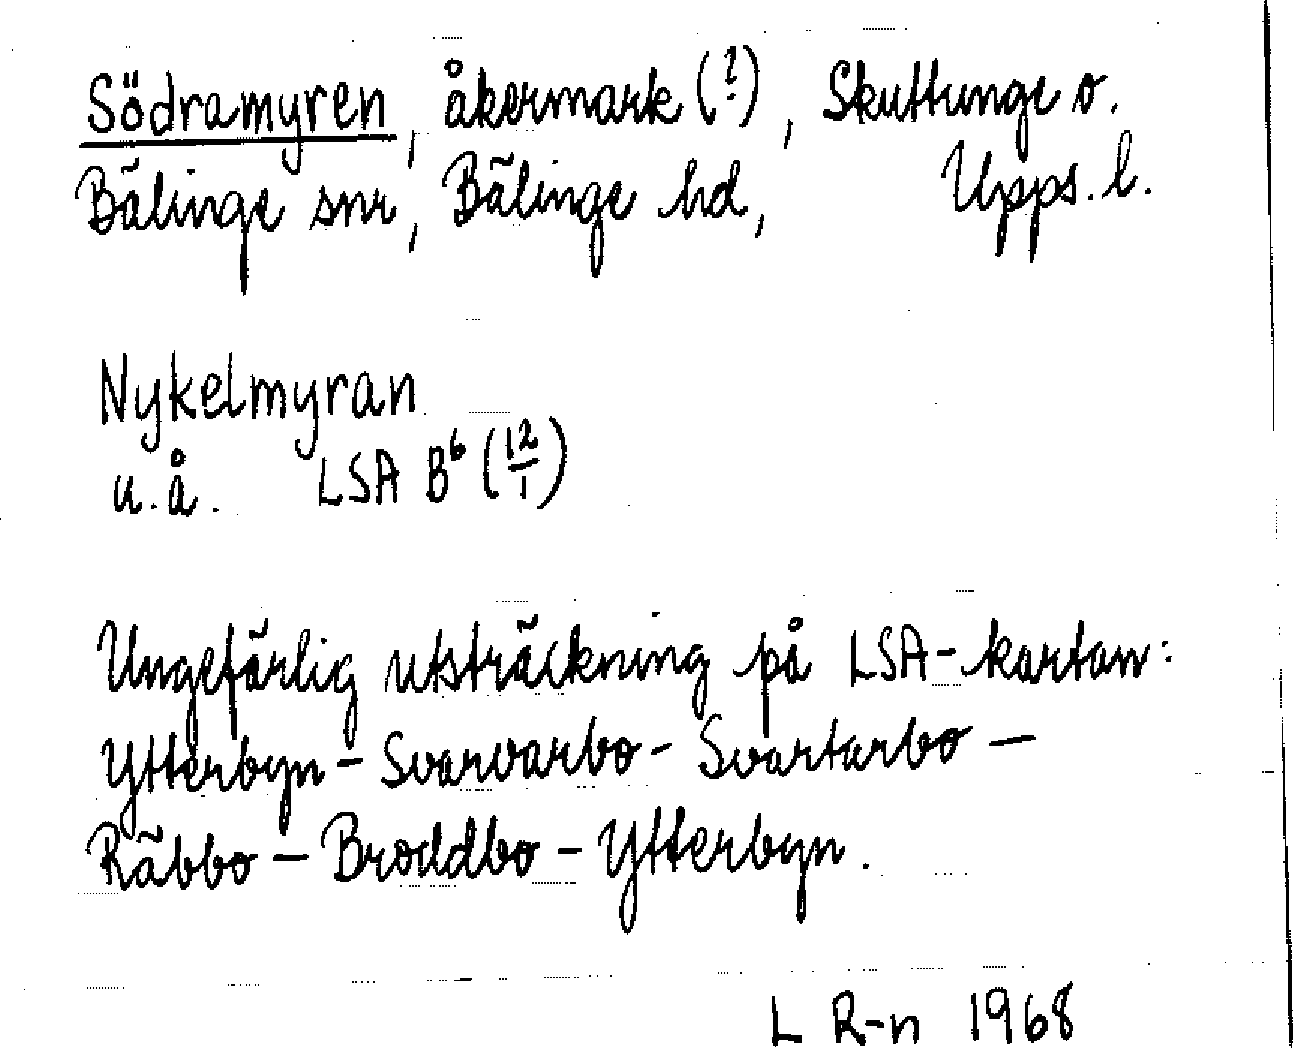 Södramyren, åkermark (?), Skuttunge o.
Bälinge snr, Bälinge hd, Upps. l.
Nykelmyran
u.å. LSA B⁶ (12/1)
Ungefärlig utsträckning på LSA-kartan:
Ytterbyn – Svarvarbo – Svartarbo –
Räbbo – Broddbo – Ytterbyn.
L R-n 1968